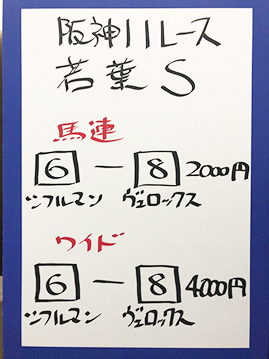 阪神11レース
若葉S
馬連
6 ー 8 2000円
ジフルマン ヴェロックス
ワイド
6 ー 8 4000円
ジフルマン ヴェロックス